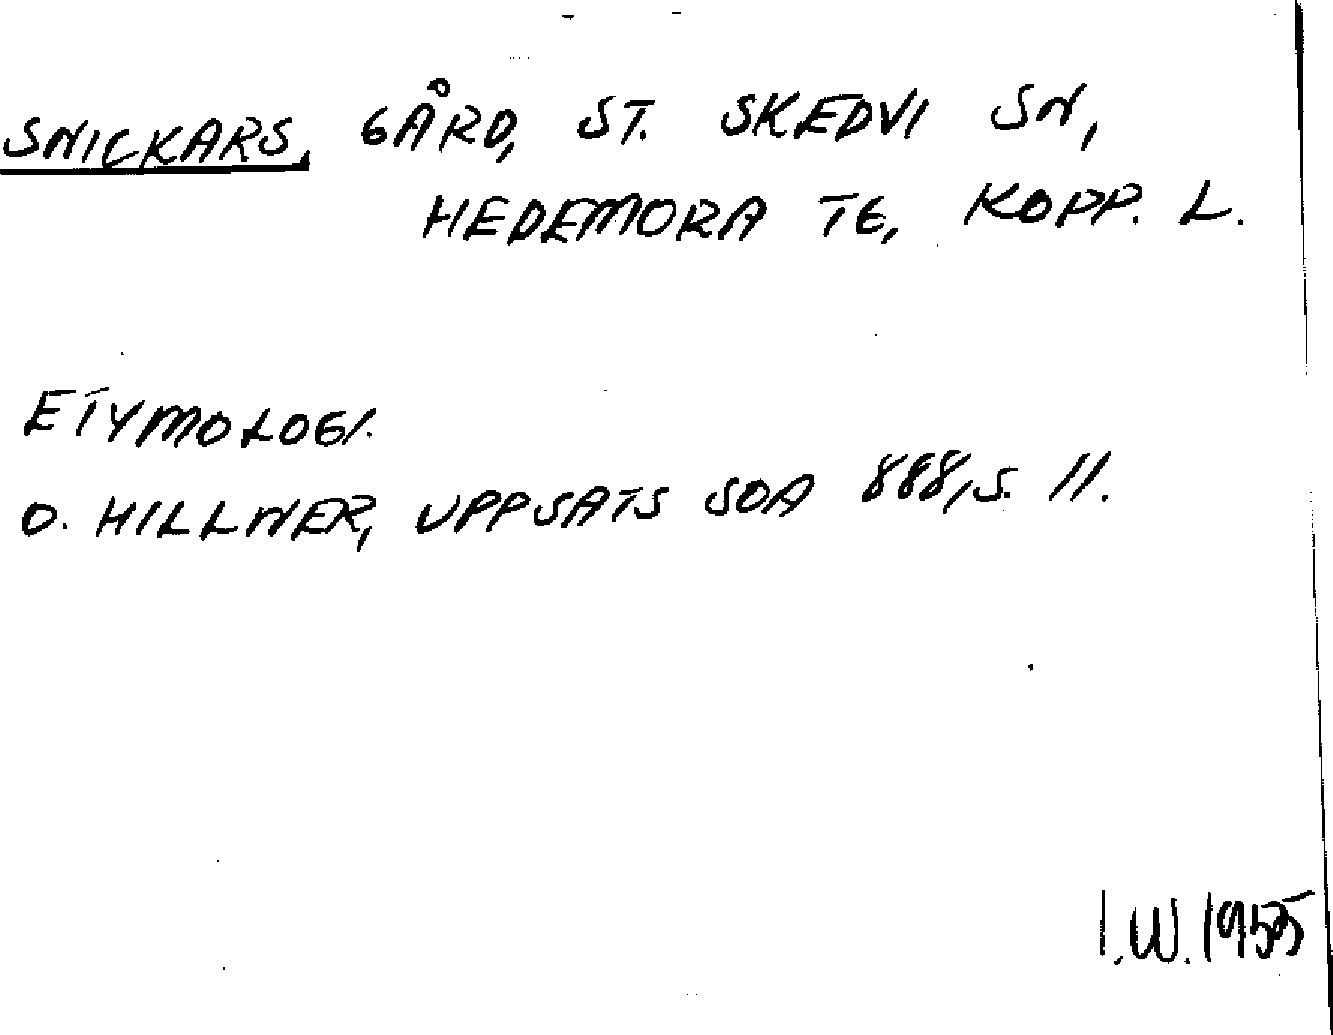 SNICKARS, GÅRD, ST. SKEDVI SN,
HEDEMORA TG, KOPP. L.
ETYMOLOGI.
O. HILLNER, UPPSATS SOA 888, S. 11.
I.W. 1955